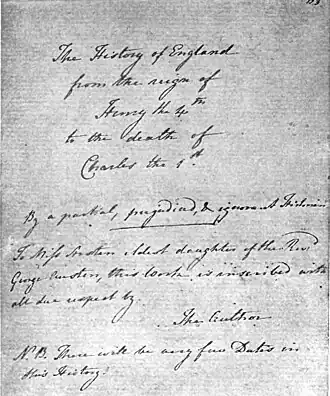 The History of England
from the reign of
Henry the 4th
to the death of
Charles the 1st
By a partial, prejudiced, & ignorant Historian
To Miss Austen eldest daughter of the Revd
George Austen, this Work is inscribed with
all due respect by
The Author
N.B. There will be very few Dates in
this History.